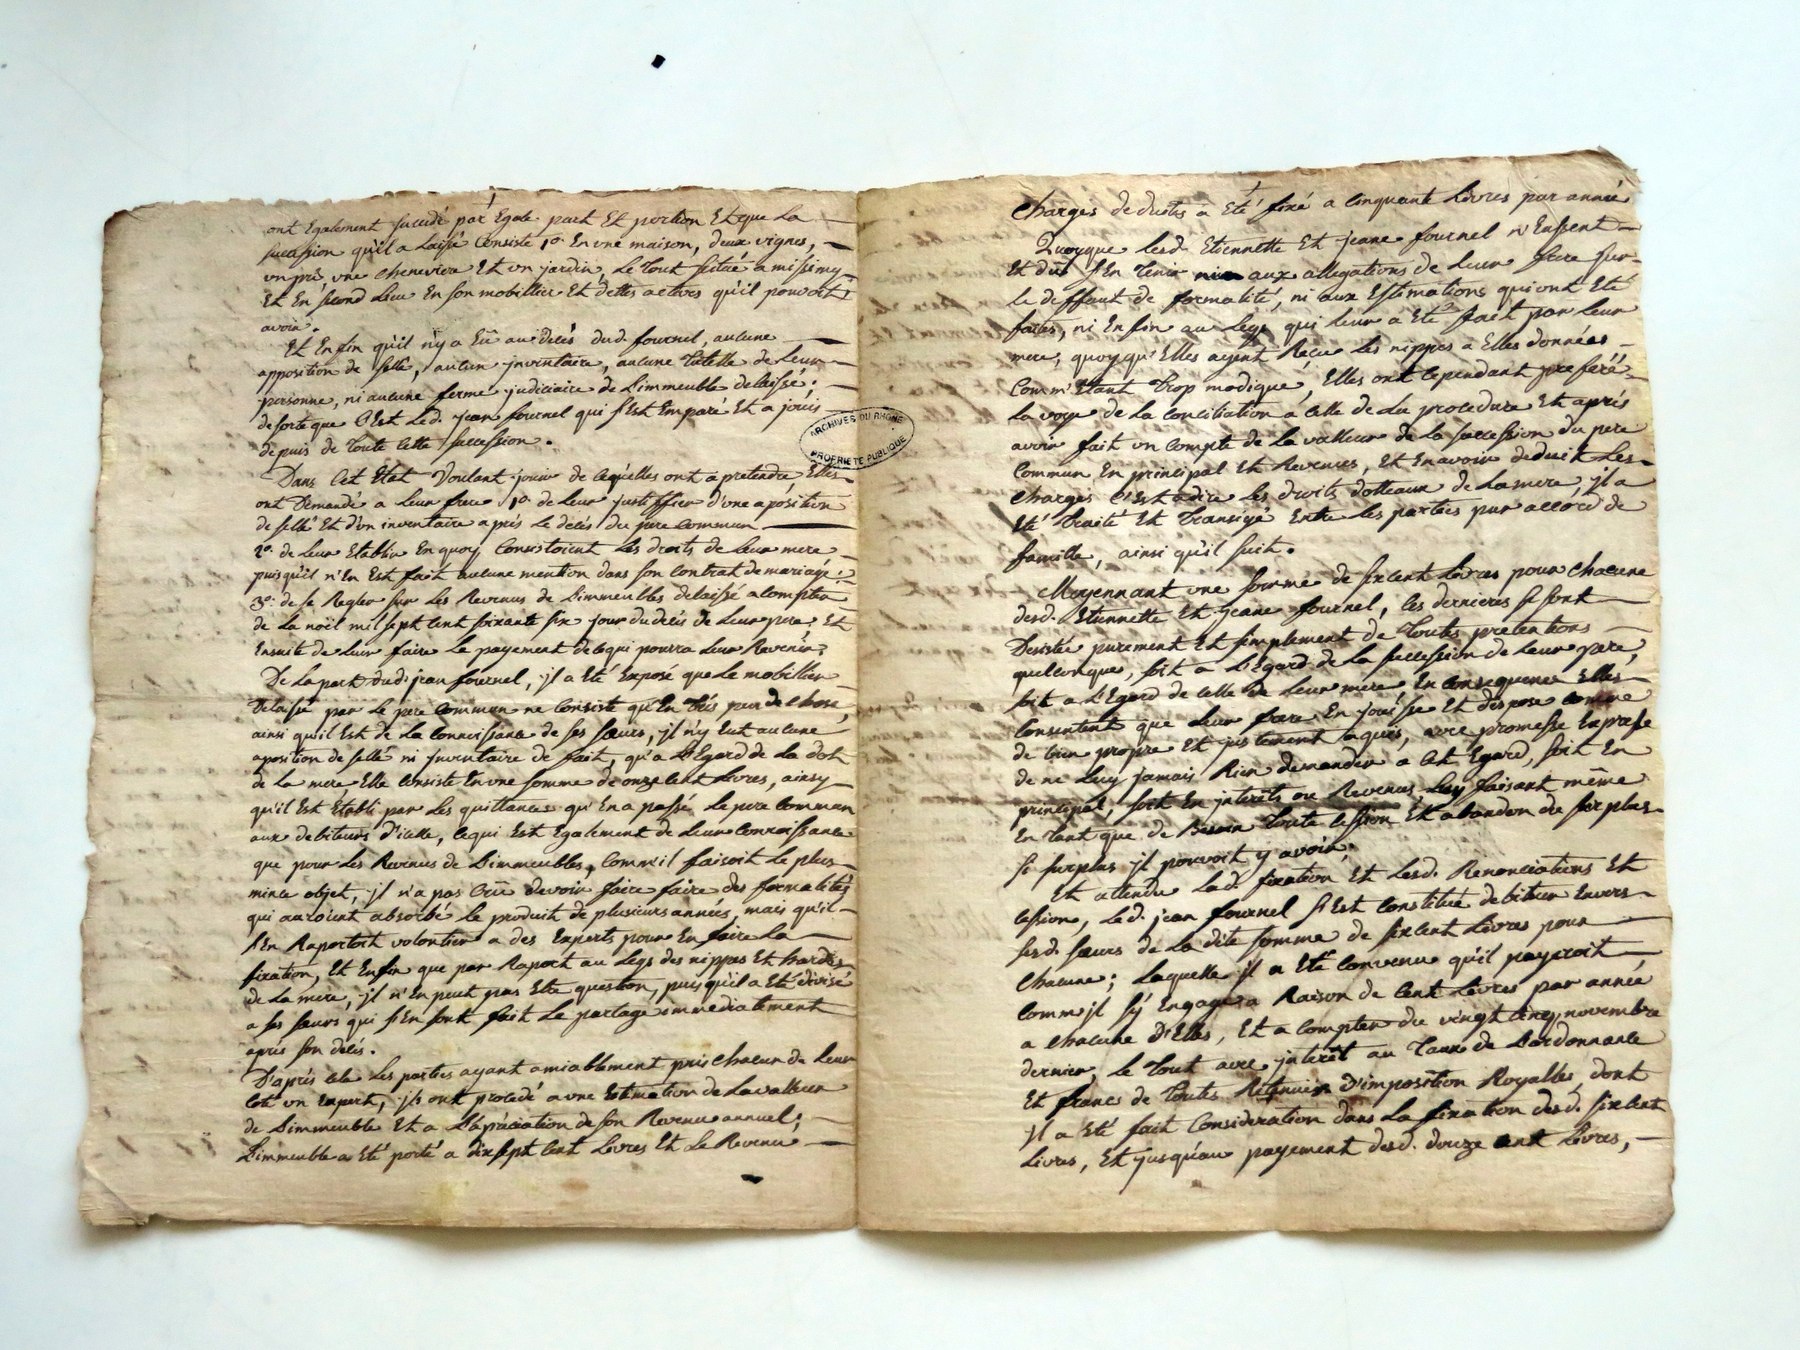 ont Egalement succedé par Egale part Et portion Et que la
succession qu'il a laissé Consiste 1o. En une maison, deux vignes,
un pré, une cheneviere Et un jardin, Le tout scitué a missimy
Et En second Lieu En son mobillier Et dettes actives qu'il pouvoit
avoir.
Et Enfin qu'il n'y a Eü au decés dud. fournel, aucune
apposition de sellé, aucun inventaire, aucune tutelle de Leur
personne, ni aucune ferme judiciaire de L'immeuble delaissé:
de sorte que C'est Led. jean fournel qui s'Est Emparé Et a jouis
depuis de toute cette succession.
Dans Cet Etat Voulant jouir de cequ'elles ont a pretendre Elles
ont Demandé a Leur frere 1o. de Leur justiffier d'une aposition
de sellé Et d'un inventaire aprés Le decés du pere commun
2o. de Leur Etablir En quoy Consistoient Les droits de Leur mere
puisqu'il n'En Est fait aucune mention dans son Contrat de mariage:
3o. de se Regler sur Les Revenus de L'immeubles delaissé a Compter
de La noël mil sept cent soixante six jour du decés de Leur pere; Et
Ensuite de Leur faire Le payement de cequi pourra Leur Revenir;
De La part dud. jean fournel, jl a Eté Exposé que Le mobillier
Delaissé par Le pere Commun ne Consiste qu'En trés peu de Chose,
ainsi qu'il Est de La Connoissance de ses sœurs, jl n'y Eut aucune
aposition de sellé ni jnventaire de fait, qu'a L'Egard de La dot
de La mere Elle Consiste En une somme de onze Cent Livres, ainsy
qu'il Est Etabli par Les quittances qu'En a passé Le pere Commun
aux debiteurs d'icelle, Cequi Est Egalement de Leur Connoissance
que pour Les Revenus de L'immeubles, Comm'il faisoit Le plus
mince objet, jl n'a pas Crü devoir faire faire des formalités
qui auroient absorbé Le produit de plusieurs années, mais qu'il
s'En Raportoit volontier a des Experts pour En faire La
fixation, Et Enfin que par Raport au Legs des nippes Et hardes
de La mere, jl n'En peut pas Etre question, puisqu'il a Eté divisé
a ses sœurs qui s'En sont fait Le partage immediatement
aprés son decés.
D'aprés Cela Les parties ayant amiablement pris Chacun de Leur
Coté un Expert, jls ont procedé a une Estimation de La valleur
de L'immeuble Et a L'apréciation de son Revenu annuel;
L'immeuble a Eté porté a dix sept Cent Livres Et Le Revenu
ARCHIVES DU RHÔNE
PROPRIETE PUBLIQUE
Charges deduites a Eté fixé a Cinquante Livres par année
Quoyque Lesd. Etiennette Et jeane fournel n'Eussent
Et dü s'En tenir aux allegations de Leur frere sur
Le deffaut de formalité, ni aux Estimations qui ont Eté
faites, ni Enfin au Legs qui Leur a Eté fait par Leur
mere, quoyqu'Elles ayent Reçu Les nippes a Elles données
Comm'Etant trop modique, Elles ont Cependant preferé
La voye de La Conciliation a Celle de La procedure Et aprés
avoir fait un Compte de La valleur de La succession du pere
Commun En principal Et Revenus, Et En avoir deduit Les
Charges C'Est adire Les droits dotteaux de La mere, jl a
Eté traité Et transigé Entre Les parties par accord de
famille, ainsi qu'il suit.
Moyennant une somme de six Cent Livres pour Chacune
desd. Etiennette Et jeane fournel, Ces dernieres se sont
Desistée purement Et simplement de toutes pretentions
quelconque, soit a L'Egard de La succession de Leur pere,
soit a L'Egard de Celle de Leur mere En Consequence Elles
Consentent que Leur frere En jouisse Et dispose Comme
de bien propre Et justement aquis, avec promesse Expresse
de ne Luy jamais Rien demander a Cet Egard, soit En
principal, soit En jnterêts ou Revenus Luy faisant même
En tant que de Besoin toute Cession Et abandon du surplus
si surplus jl pouvoit y avoir;
Et attendu Lad. fixation Et Lesd. Renonciations Et
Cession, Led. jean fournel s'Est Constitué debiteur Envers
sesd. sœurs de La dite somme de six Cent Livres pour
Chacune; Laquelle jl a Eté Convenu qu'il payeroit
Comm'jl s'y Engage a Raison de Cent Livres par année
a Chacune d'Elles, Et a Compter du vingt Cinq novembre
dernier, Le tout avec jnterêt au taux de L'ordonnance
Et francs de toutes Retenues d'imposition Royalles, dont
jl a Eté fait Consideration dans La fixation desd. six Cent
Livres, Et jusqu'au payement desd. douze Cent Livres,